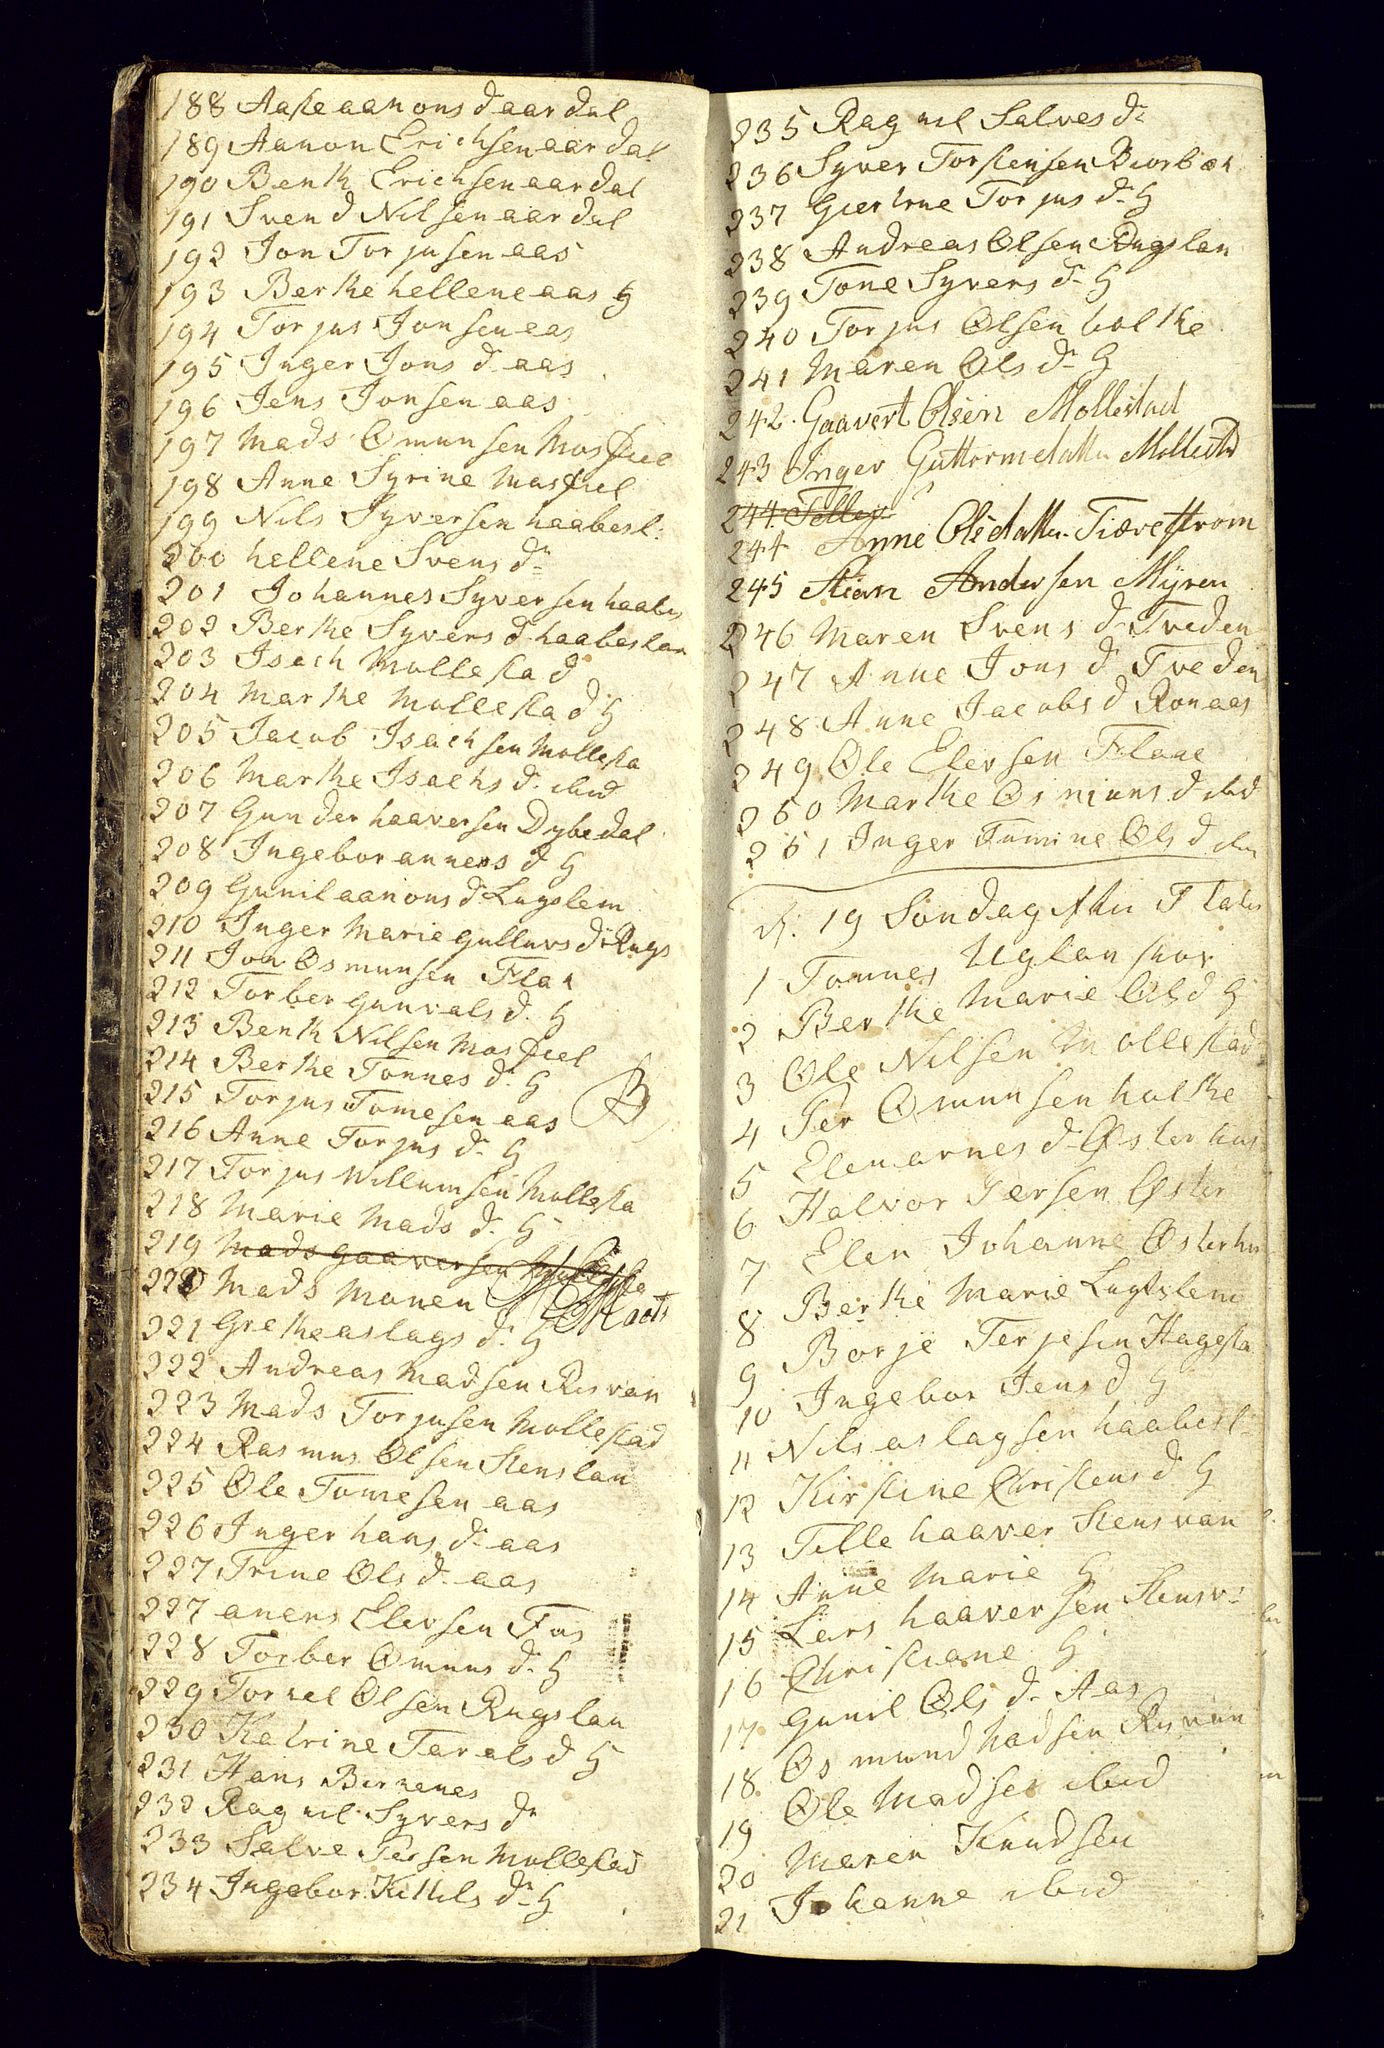 188 Aase aanons d aardal
189 Aanon Erichsen aardal
190 Benth Erichsen aardal
191 Svend Nilsen aardal
192 Jon Torjusen aas
193 Berthe hellene aas H
194 Torjus Jonsen aas
195 Inger Jons d. aas
196 Jens Jonsen aas
197 Mads Omunsen Mosfiel
198 Anne Syrine Masfiel
199 Nils Syversen haabesl:
200 hellene Svens dr
201 Johannes Syversen haabes
202 Berthe Syvers d. haabeslan
203 Isach Mollestad
204 Marthe Mollestad H
205 Jacob Isachsen Mollesta
206 Marthe Isachs d. ibid
207 Gunder haaversen Dybedal
208 Ingebor anners d H
209 Gunil aanons d. Lugslem
210 Inger Marie gulluvs d. Rugs
211 Jon Osmunsen Flak
212 Torber gunvals d. H
213 Benth Nilsen Mosfiel
214 Berthe Tonnes d. H
215 Torjus Tomesen aas B
216 Anne Torjus d. H
217 Torjus Willumsen Mollesta
218 Marie Mads d. H
219 Mads gaaversen Mollesta
220 Mads Monen
221 Grethe aslags d. H
222 Andreas Madsen Risvan
223 Mads Torjusen Mollestad
224 Rasmus Olsen Stenslan
225 Ole Tomesen aas
226 Inger hans d. aas
227 Trine Ols d. aas
227 aners Elevsen Fos
228 Torber Omuns d. H
229 Torkel Olsen Rugslan
230 Katrine Tarals d H
231 Hans Birkenes
232 Ragnil Syvers dr
233 Salve Persen Mollestad
234 Ingebor Kittils dr H
235 Ragnil Salves dr
236 Syver Torstensen Biorbæk
237 Giertrue Torjus d. H
238 Andreas Olsen Rugslan
239 Tone Syvers d. H
240 Torjus Olsen holthe
241 Maren Ols dr H
242. Gaavert Olsen Mollestad
243 Inger Guttormsdatter Mollestd
244 Tellev
244 Anne Olsdatter Tiæreström
245 Stian Andersen Myren
246 Maren Svens d. Tveden
247 Anne Jons d. Tveden
248 Anne Jacobs d Ronaas
249 Ole Elevsen Flaae
250 Marthe Osmuns d ibid
251 Inger Tomine Ols d ibi
d. 19 Søndag efter T
1 Tonnes Uglanskor
2 Berthe Marie Ols d H
3 Ole Nilsen Mollestad
4 Per Omunsen holthe
5 Elen arnes d. Østerhus
6 Halvor Persen Øster
7 Elen Johanne Østerhu
8 Berthe Marie Lugtslem
9 Borje Terjesen Hagesta
10 Ingebor Jens d H
11 Nils aslagsen haabesl:
12 Kirstine Christens d H
13 Tille haaver Stensvan
14 Anne Marie H
15 Lars haaversen Stensv:
16 Christiane H
17 Gunil Ols d. Aas
18 Osmund Madsen Risvan
19 Ole Madsen ibid
20 Maren Knudsen
21 Johanne ibid